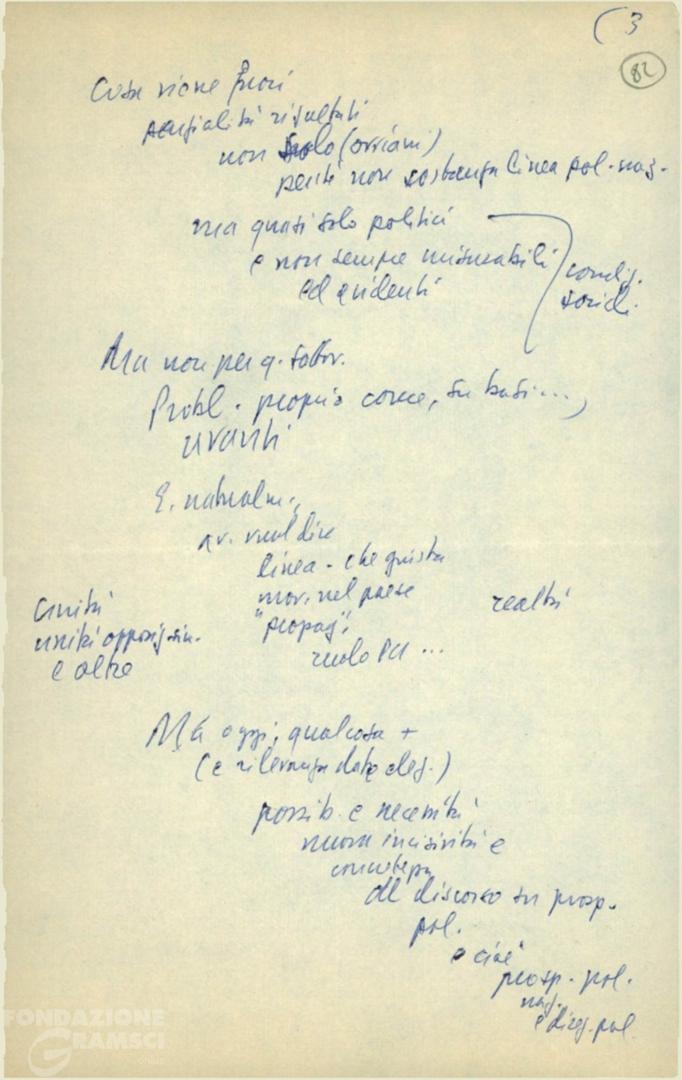 ( 3
82
Cosa viene fuori
parzialità risultati
non solo (ovviam)
perché non sostanza linea pol. naz.
ma quasi solo politici
e non sempre misurabili
ed evidenti
condiz.
social.
Ma non per q.
Probl. proprio come, su basi...,
avanti
E, naturalm.,
av. vuol dire
linea - che giusta
mov. nel paese
"propag."
ruolo PCI ...
realtà
unità
unità opposiz. sin.
e oltre
Ma oggi, qualcosa +
(e rilevanza data elez.)
possib. e necessità
nuova incisività e
concretezza
del discorso su prosp.
pol.
e cioè
prosp. pol.
naz.
e direz. pol.
FONDAZIONE
GRAMSCI